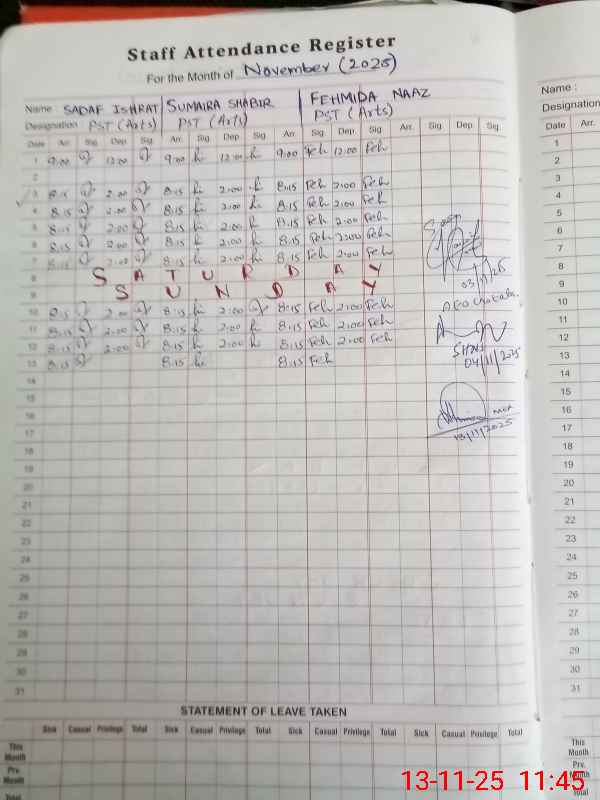 Staff Attendance Register
For the Month of November (2025)
Name : SADAF ISHRAT SUMAIRA SHABIR FEHMIDA NAAZ
Designation PST (Arts) PST (Arts) PST (Arts)
Date Arr. Sig. Dep. Sig. Arr. Sig. Dep. Sig. Arr. Sig. Dep. Sig. Arr. Sig. Dep. Sig.
1 9:00 12:00 9:00 12:00 9:00 Feh 12:00 Feh
2
3 8:15 2:00 8:15 2:00 8:15 Feh 2:00 Feh
4 8:15 2:00 8:15 2:00 8:15 Feh 2:00 Feh
5 8:15 2:00 8:15 2:00 8:15 Feh 2:00 Feh
6 8:15 2:00 8:15 2:00 8:15 Feh 2:00 Feh
7 8:15 2:00 8:15 2:00 8:15 Feh 2:00 Feh
8 SATURDAY
9 SUNDAY
10 8:15 2:00 8:15 2:00 8:15 Feh 2:00 Feh
11 8:15 2:00 8:15 2:00 8:15 Feh 2:00 Feh
12 8:15 2:00 8:15 2:00 8:15 Feh 2:00 Feh
13 8:15 8:15 8:15 Feh
14
15
16
17
18
19
20
21
22
23
24
25
26
27
28
29
30
31
03/11/25
04/11/2025
MEA
13/11/2025
STATEMENT OF LEAVE TAKEN
Sick Casual Privilege Total Sick Casual Privilege Total Sick Casual Privilege Total Sick Casual Privilege Total
This
Month
Prv.
Month
Total
Name :
Designation
Date Arr.
1
2
3
4
5
6
7
8
9
10
11
12
13
14
15
16
17
18
19
20
21
22
23
24
25
26
27
28
29
30
31
This
Month
Prv.
Month
Total
13-11-25 11:45